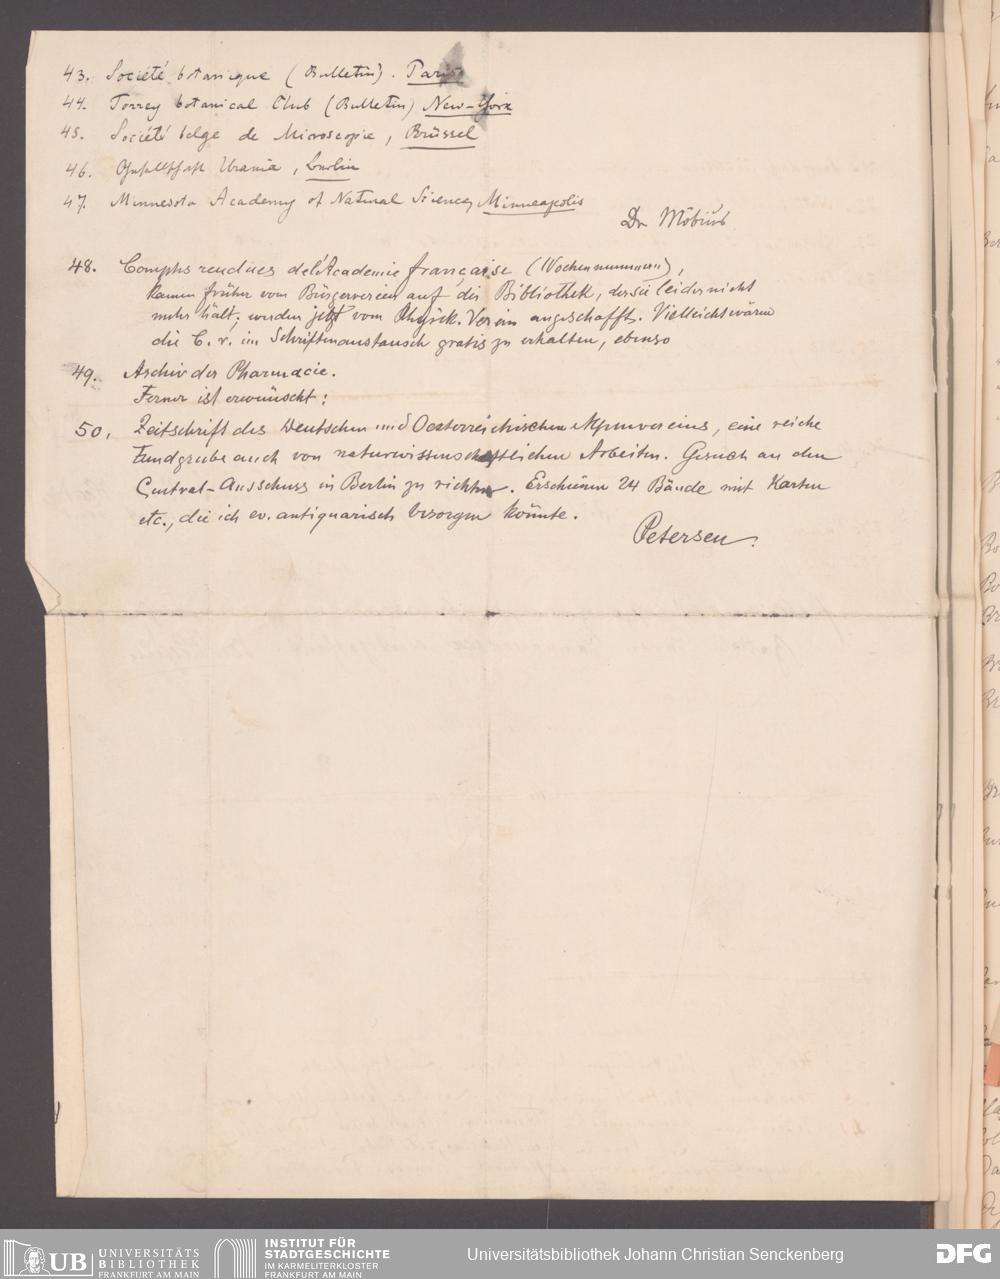 43. Société botanique (Bulletin). Paris
44. Torrey botanical Club (Bulletin) New-York
45. Société belge de Microscopie, Brüssel
46. Gesellschaft Urania, Berlin
47. Minnesota Academy of Natural Sciences, Minneapolis
Dr Möbius
48. Comptes rendues de l'Academie française (Wochennummern),
kamen früher vom Bürgerverein auf die Bibliothek, der sie leider nicht
mehr hält, werden jetzt vom Physik. Verein angeschafft. Vielleicht wären
die C. r. im Schriftenaustausch gratis zu erhalten, ebenso
49. Archiv der Pharmacie.
Ferner ist erwünscht:
50. Zeitschrift des Deutschen und Oesterreichischen Alpenvereins, eine reiche
Fundgrube auch von naturwissenschaftlichen Arbeiten. Gesuch an den
Central-Ausschuss in Berlin zu richten. Erschienen 24 Bände mit Karten
etc., die ich ev. antiquarisch besorgen könnte.
Petersen.
UB UNIVERSITÄTS
BIBLIOTHEK
FRANKFURT AM MAIN
INSTITUT FÜR
STADTGESCHICHTE
IM KARMELITERKLOSTER
FRANKFURT AM MAIN
Universitätsbibliothek Johann Christian Senckenberg
DFG